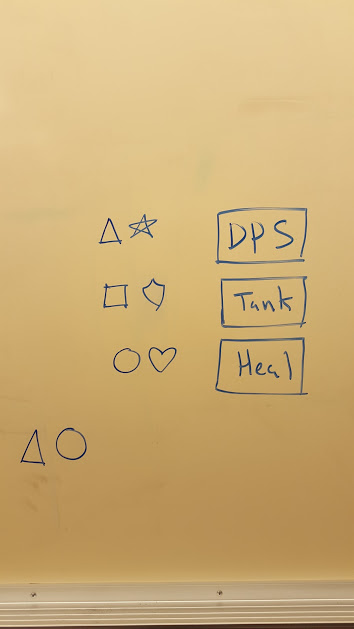 DPS
Tank
Heal